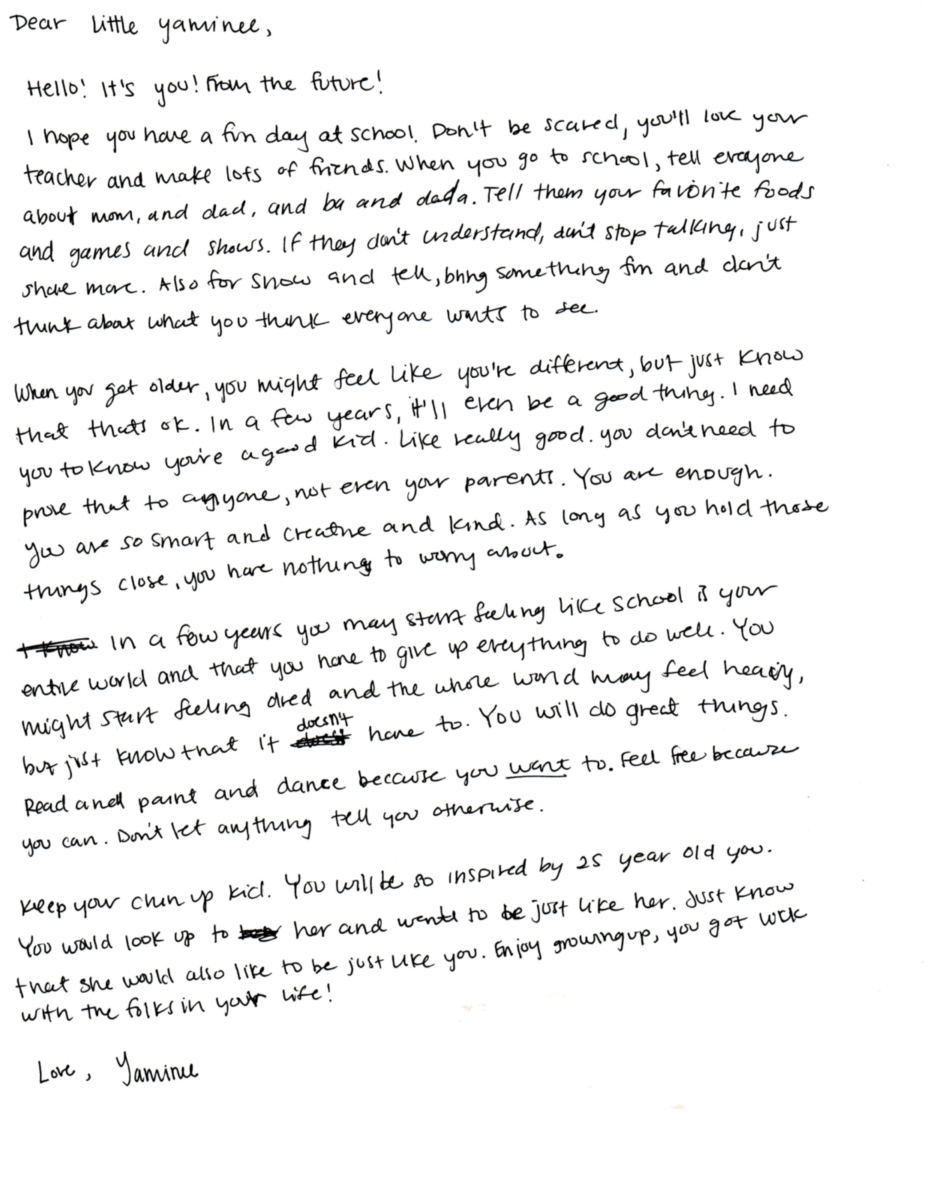 Dear little yaminee,
Hello! It's you! From the future!
I hope you have a fun day at school. Don't be scared, you'll love your
teacher and make lots of friends. When you go to school, tell everyone
about mom, and dad, and ba and dada. Tell them your favorite foods
and games and shows. If they don't understand, don't stop talking, just
share more. Also for show and tell, bring something fun and don't
think about what you think everyone wants to see.
When you get older, you might feel like you're different, but just know
that thats ok. In a few years, it'll even be a good thing. I need
you to know you're a good kid. Like really good. you don't need to
prove that to anyone, not even your parents. You are enough.
You are so smart and creative and kind. As long as you hold those
things close, you have nothing to worry about.
I know In a few years you may start feeling like school is your
entire world and that you have to give up everything to do well. You
might start feeling tired and the whole world may feel heavy,
but just know that it doesn't have to. You will do great things.
Read and paint and dance because you want to. Feel free because
you can. Don't let anything tell you otherwise.
Keep your chin up kid. You will be so inspired by 25 year old you.
You would look up to her and want to be just like her. Just know
that she would also like to be just like you. Enjoy growing up, you got luck
with the folks in your life!
Love, Yaminee